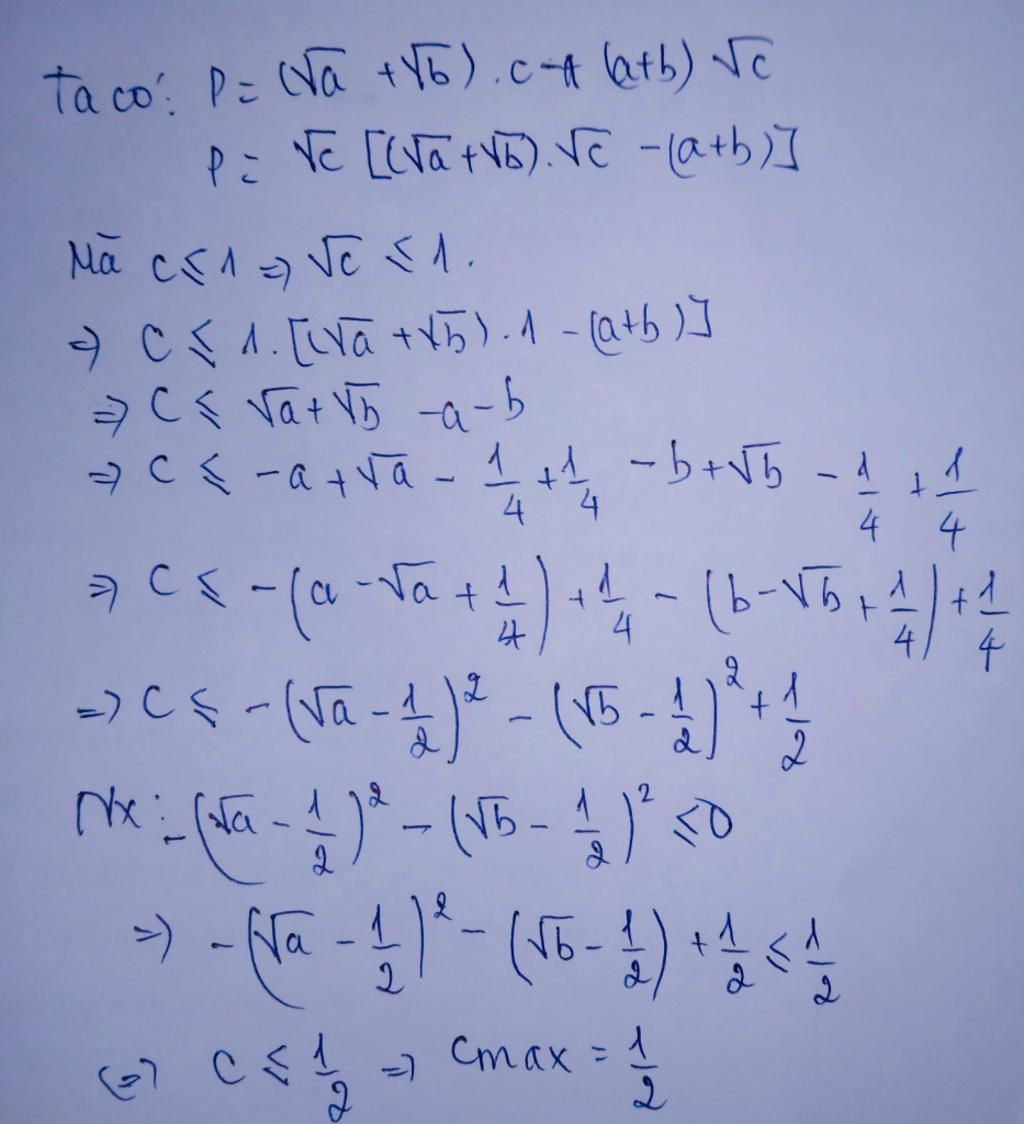 Ta có: P = (√a + √b).c - (a+b)√c
P = √c [(√a + √b).√c - (a+b)]
Mà c ≤ 1 => √c ≤ 1.
=> C ≤ 1.[(√a + √b).1 - (a+b)]
=> C ≤ √a + √b - a - b
=> C ≤ -a + √a - 1/4 + 1/4 - b + √b - 1/4 + 1/4
=> C ≤ -(a - √a + 1/4) + 1/4 - (b - √b + 1/4) + 1/4
=> C ≤ -(√a - 1/2)² - (√b - 1/2)² + 1/2
Nx: -(√a - 1/2)² - (√b - 1/2)² ≤ 0
=> -(√a - 1/2)² - (√b - 1/2) + 1/2 ≤ 1/2
(=> C ≤ 1/2 => Cmax = 1/2